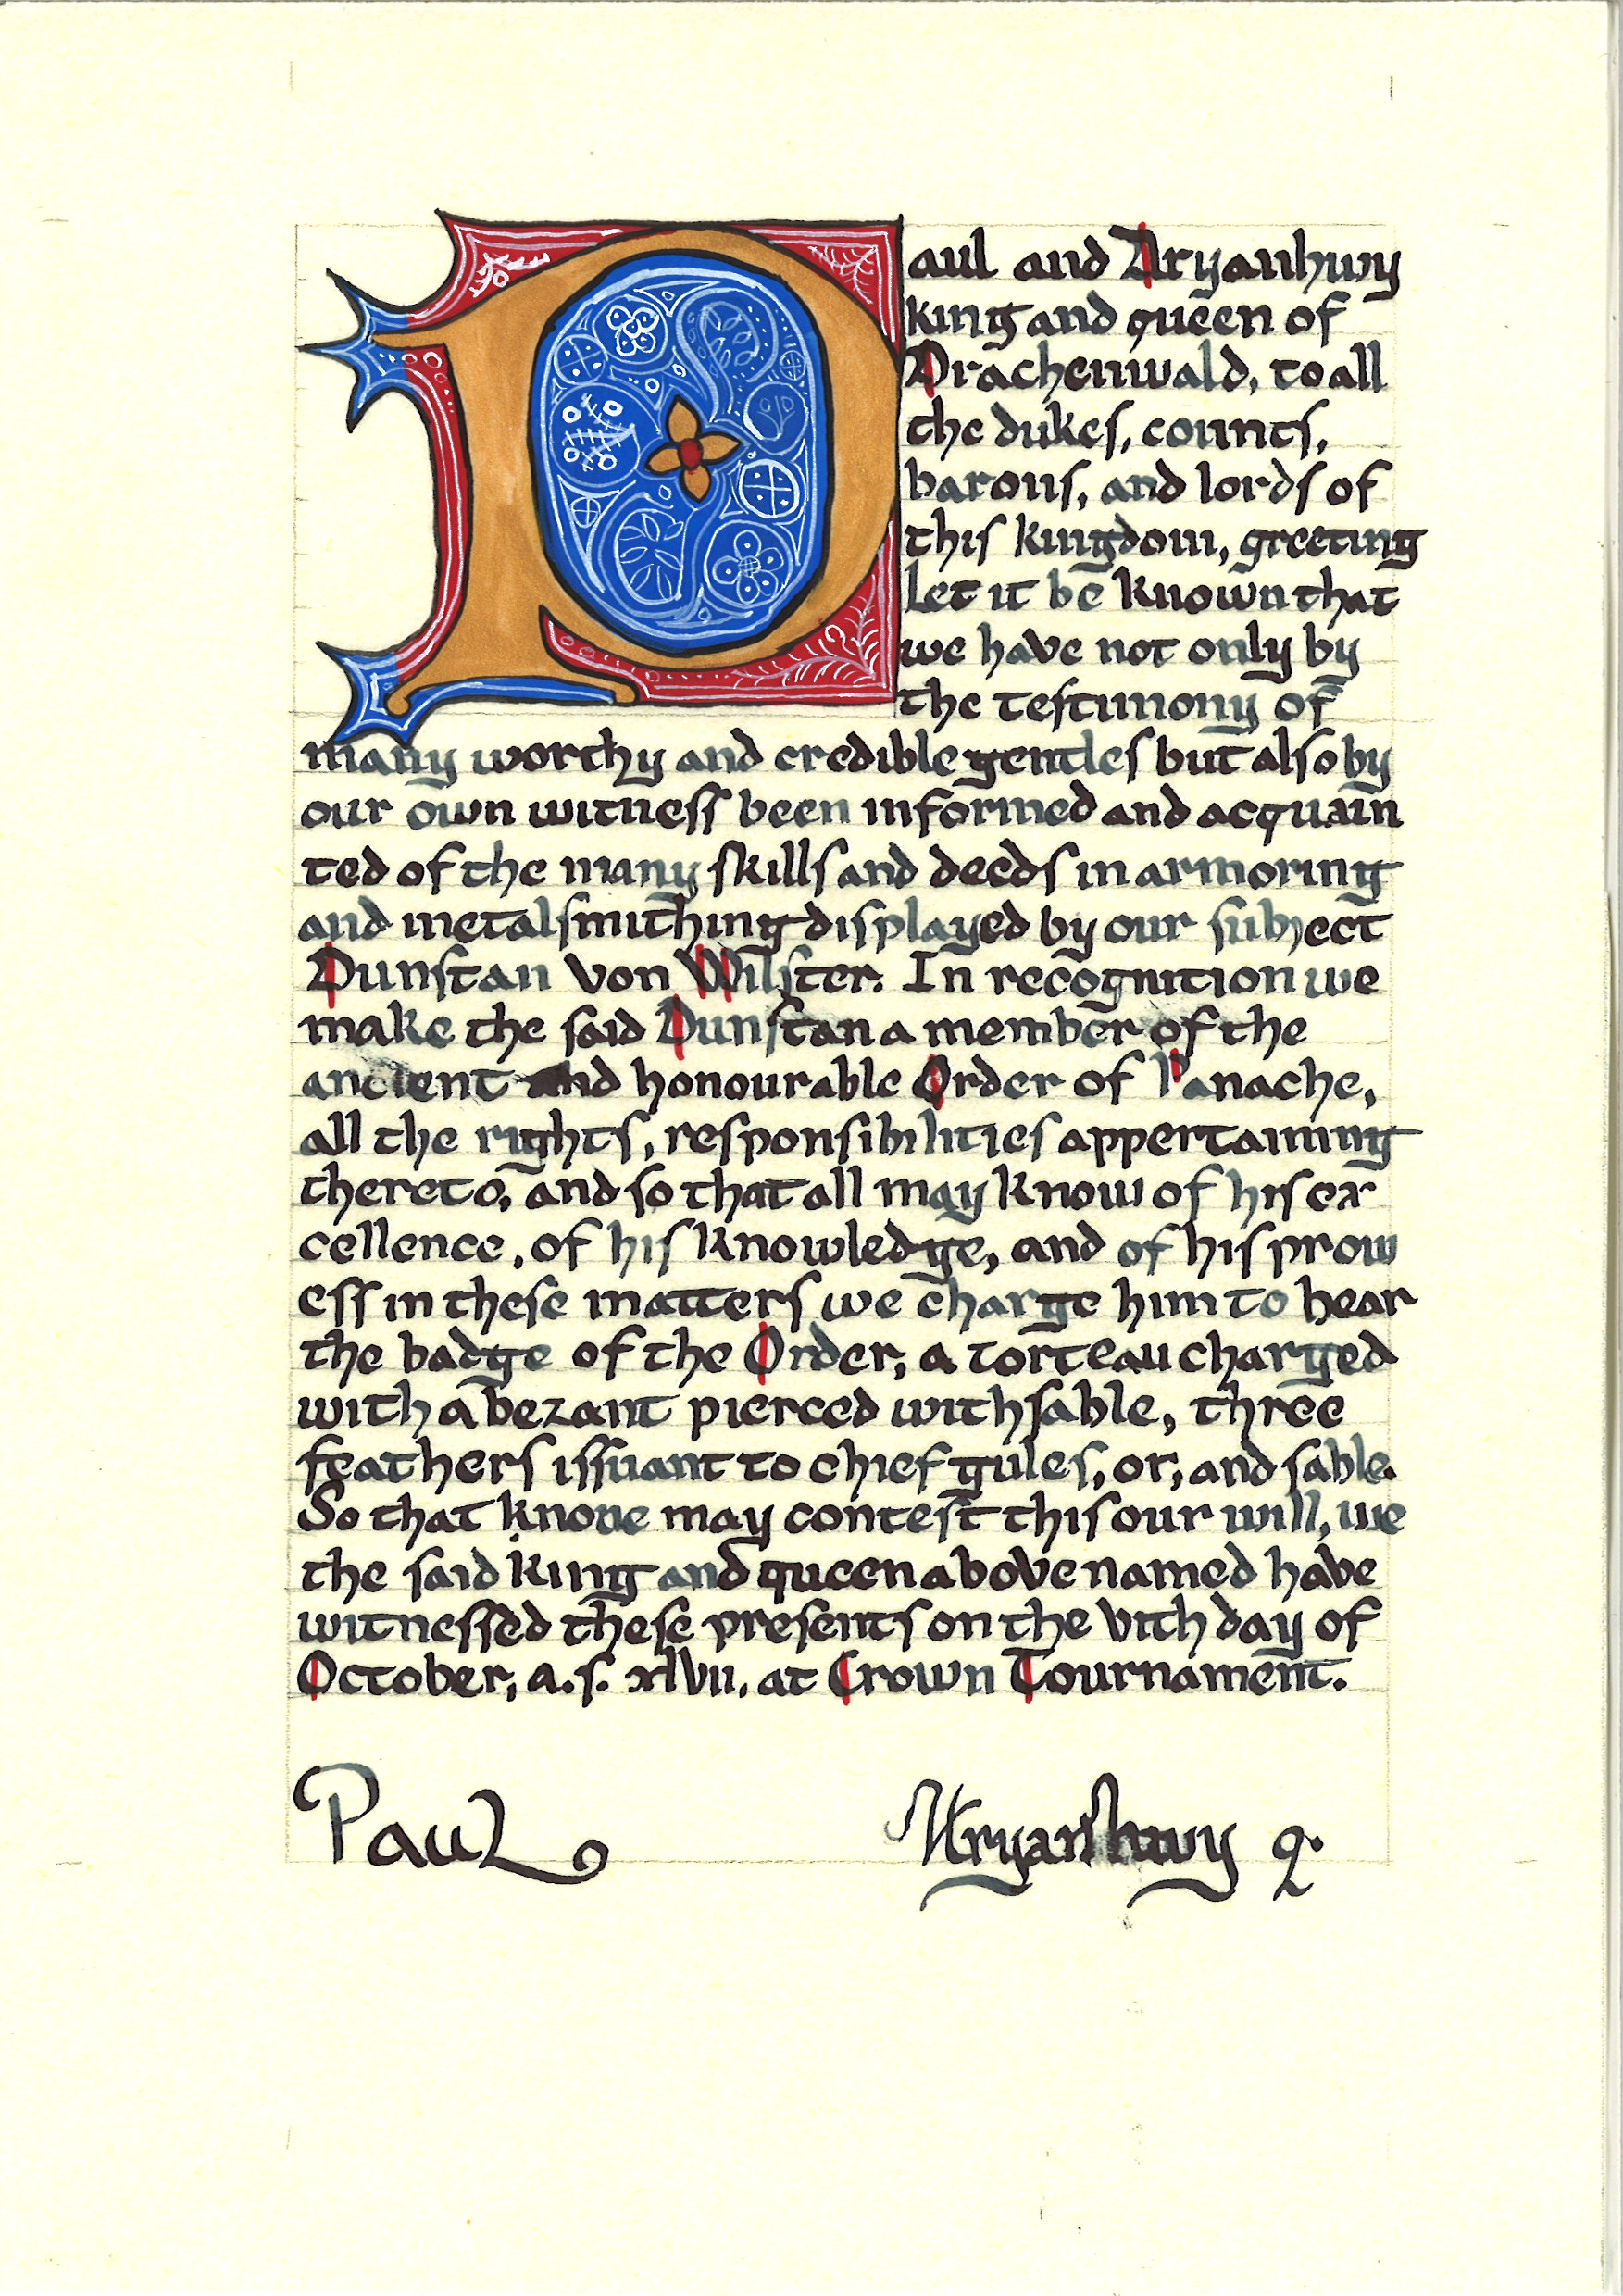 Paul and Aryanhwy
king and queen of
Drachenwald, to all
the dukes, counts,
barons, and lords of
this kingdom, greeting
Let it be known that
we have not only by
the testimony of
many worthy and credible gentles but also by
our own witness been informed and acquain
ted of the many skills and deeds in armoring
and metalsmithing displayed by our subject
Dunstan von Wilster. In recognition we
make the said Dunstan a member of the
ancient and honourable Order of Panache,
all the rights, responsibilities appertaining
thereto, and so that all may know of his ex
cellence, of his knowledge, and of his prow
ess in these matters we charge him to bear
the badge of the Order, a torteau charged
with a bezant pierced with sable, three
feathers issuant to chief gules, or, and sable.
So that knone may contest this our will, we
the said king and queen above named have
witnessed these presents on the vith day of
October, a.s. xlvii, at Crown Tournament.
Paul
Aryanhwy q.